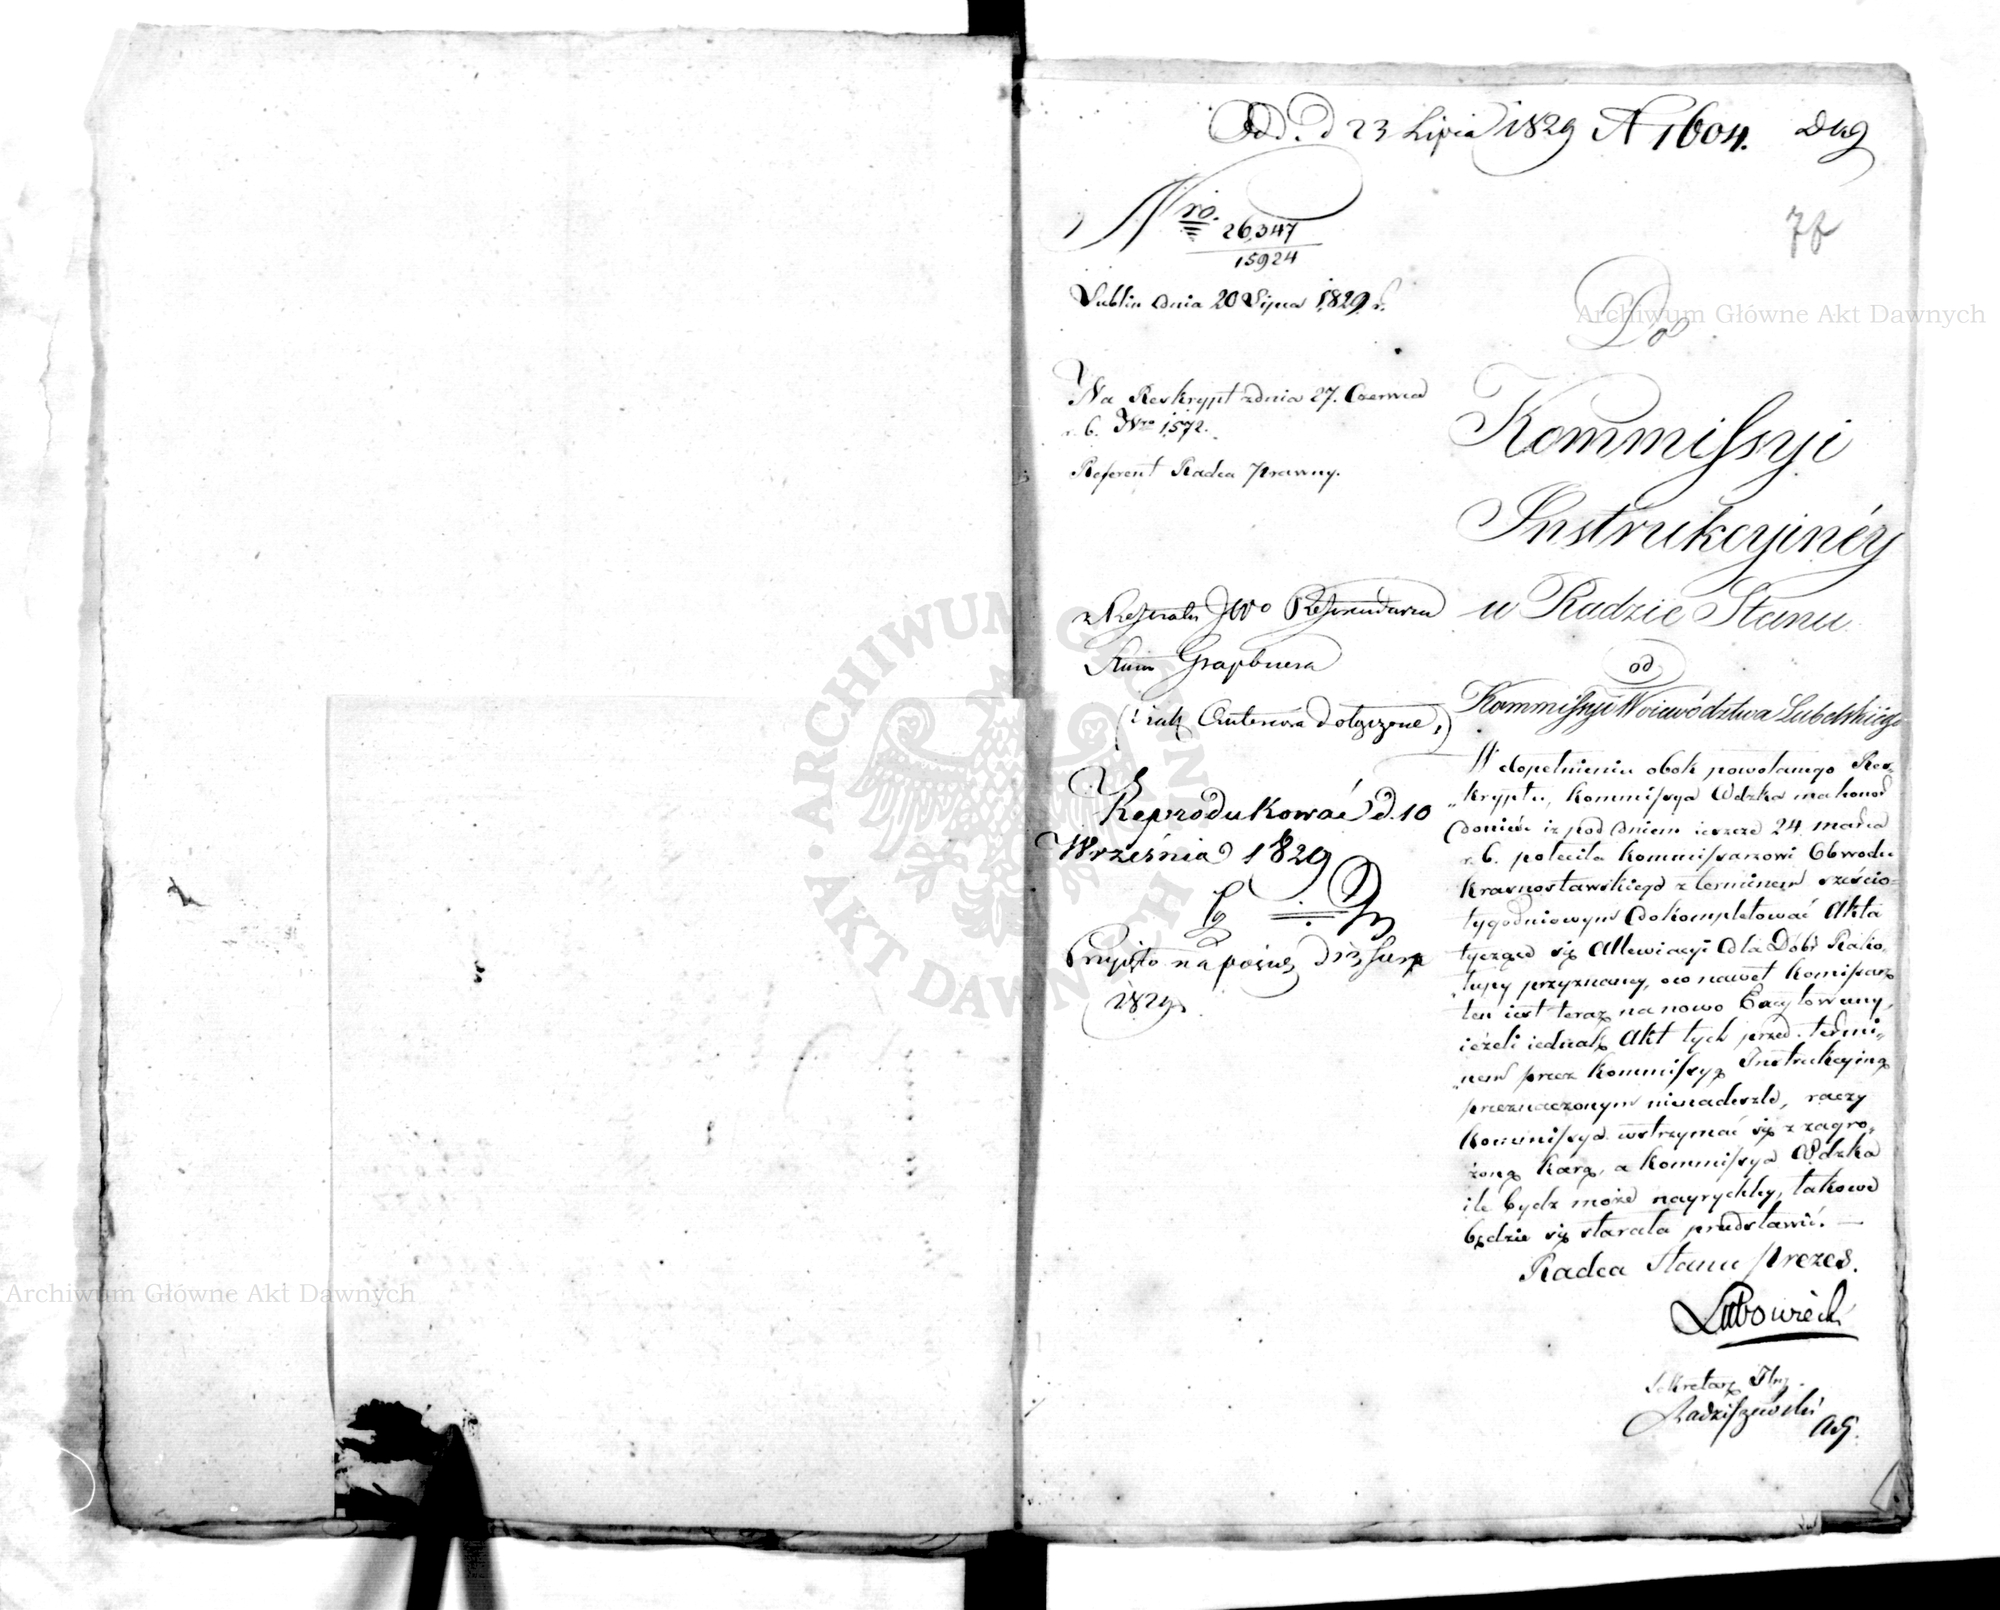 Odd. d 23 Lipca 1829 N 1604.
Nro. 26,347
15924
Lublin dnia 20 Lipca 1829 r.
Na Reskrypt z dnia 27. Czerwca
r. b. Nro 1,572.
Referent Radca Prawny.
z Referatu JWo Referendarza
Grapbnera
Reprodukować d. 10
Września 1829
Przyięto na posied. d 13
1829
Do
Kommissyi
Instrukcyinéy
w Radzie Stanu
od
Kommissyi Woiewództwa Lubelskiégo
W dopełnieniu obok powołanego Res-
„kryptu, Kommissya Wdzka ma honor
donieść iż pod dniem ieszcze 24. marca
r. b. poleciła Kommissarzowi Obwodu
Krasnostawskiego z terminem sześcio-
tygodniowym dokompletować Akta
tyczące się Allewiacyi dla Dóbr Rako-
„łupy przyznaney, o co nawet Komissarz
ten iest teraz na nowo Excytowany,
ieżeli iednak Akt tych przed termi-
„nem przez Kommissyą Instrukcyiną
przeznaczonym nienadeszle, raczy
Kommissya wstrzymać się z zagro-
żoną karą, a Kommissya Wdzka
ile bydz może nayrychléy, takowe
będzie się starała przedstawić. —
Radca Stanu Prezes.
Lubowiecki
Sekretarz Jlny.
Radziszewski
Archiwum Główne Akt Dawnych
Archiwum Główne Akt Dawnych
ARCHIWUM GŁÓWNE AKT DAWNYCH